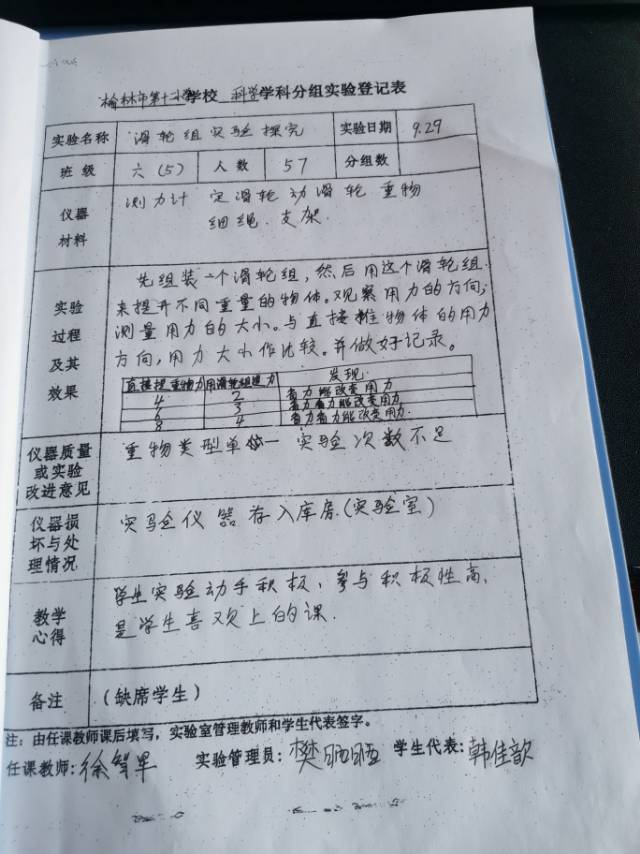 榆林市第十二小学校 科学学科分组实验登记表
实验名称 滑轮组实验探究 实验日期 9.29
班级 六(5) 人数 57 分组数
仪器材料 测力计 定滑轮 动滑轮 重物
细绳. 支架.
实验过程及其效果 先组装一个滑轮组,然后用这个滑轮组
来提升不同重量的物体。观察用力的方向;
测量用力的大小。与直接 物体的用力
方向,用力大小作比较。并做好记录。
直接提重物力 用滑轮组 力 发现
4 2 省力能改变用力
3 省力能改变用力
8 4 省力能改变用力.
仪器质量或实验改进意见 重物类型单一 实验次数不足
仪器损坏与处理情况 实验仪器存入库房.(实验室)
教学心得 学生实验动手积极,参与积极性高.
是学生喜欢上的课.
备注 (缺席学生)
注:由任课教师课后填写,实验室管理教师和学生代表签字。
任课教师:徐 军 实验管理员:樊晒晒 学生代表:韩佳歆